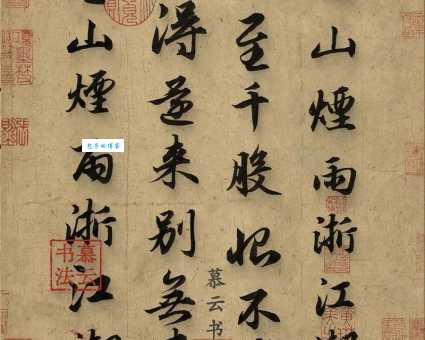 山煙雨浙江潮
至千般恨不
得還来别無
山煙雨浙江潮
慕云书法
慕云书